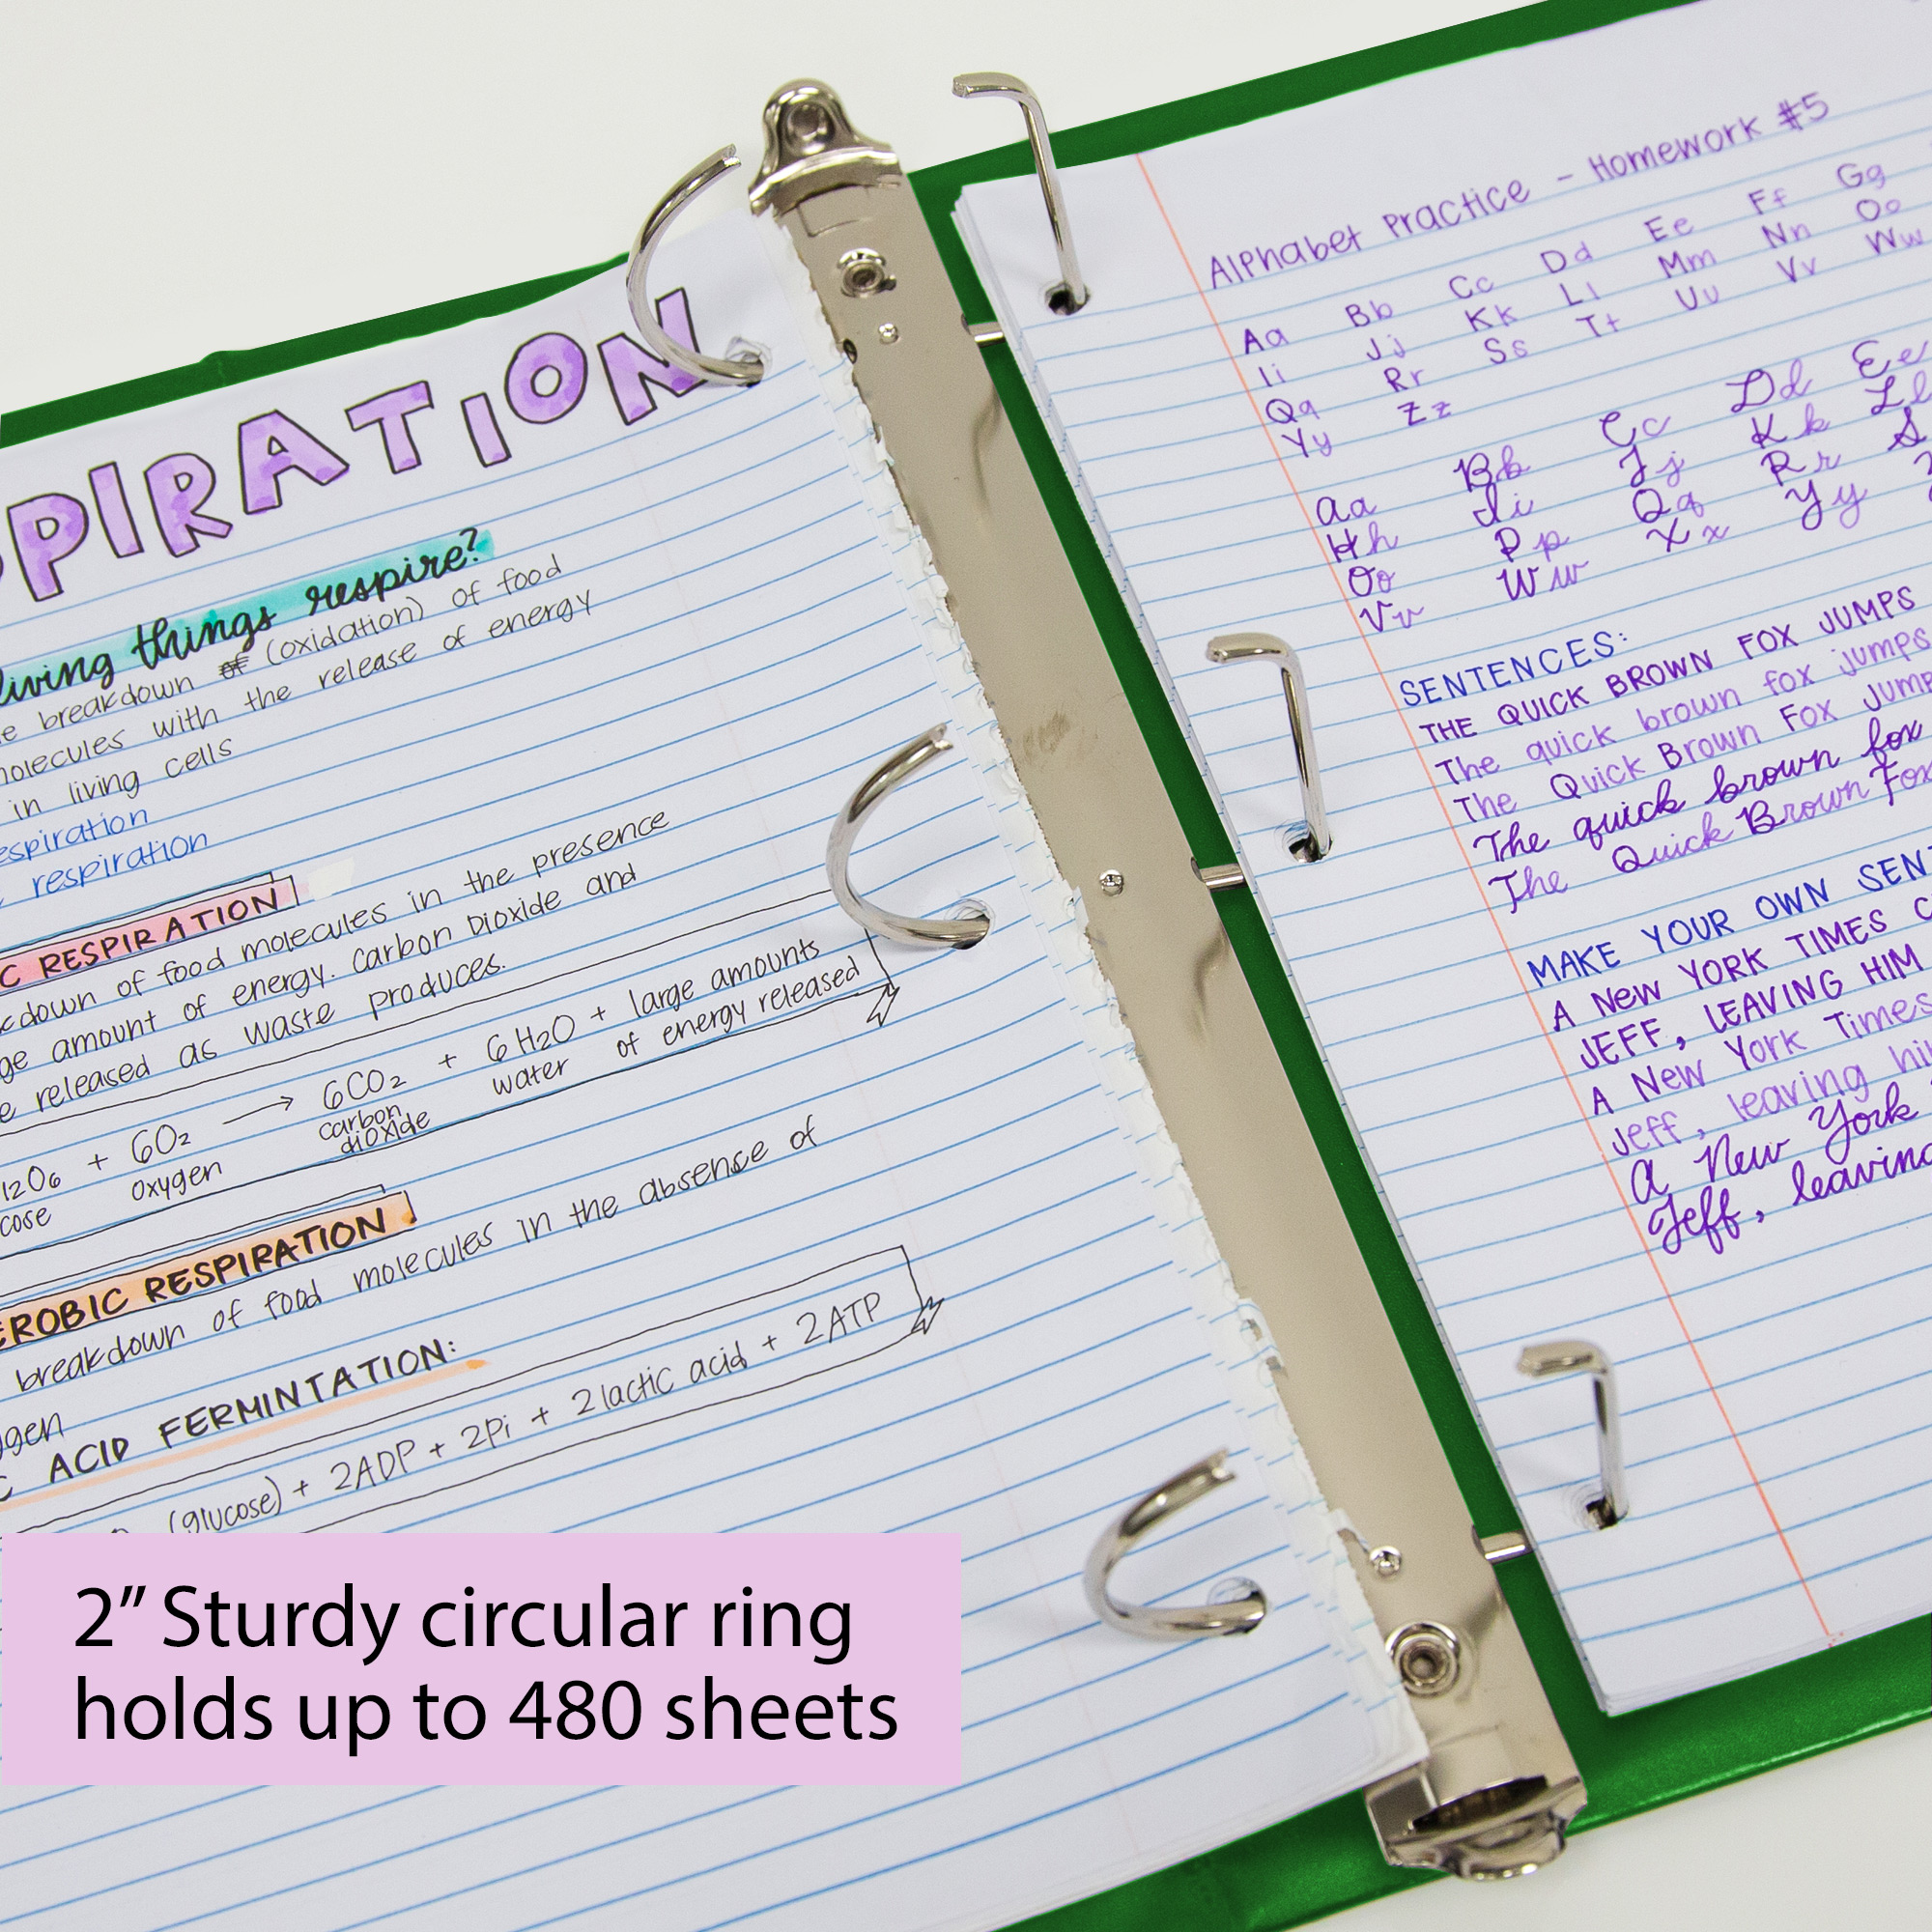 PIRATION
living things respire?
breakdown of (oxidation) of food
molecules with the release of energy
in living cells
respiration
respiration
C RESPIRATION
kdown of food molecules in the presence
ge amount of energy. Carbon Dioxide and
e released as waste produces.
12O6 + 6O2 → 6CO2 + 6H2O + large amounts
cose oxygen carbon dioxide water of energy released
EROBIC RESPIRATION
breakdown of food molecules in the absence of
ygen
C ACID FERMINTATION:
(glucose) + 2ADP + 2Pi + 2 lactic acid + 2ATP
Alphabet Practice - Homework #5
Aa Bb Cc Dd Ee Ff Gg
Ii Jj Kk Ll Mm Nn Oo
Qq Rr Ss Tt Uu Vv Ww
Yy Zz
Aa Bb Cc Dd Ee
Hh Ii Jj Kk Ll
Oo Pp Qq Rr S
Vv Ww Xx Yy
SENTENCES:
THE QUICK BROWN FOX JUMPS
The quick brown fox jumps
The Quick Brown Fox Jump
The quick brown fox
The Quick Brown Fox
MAKE YOUR OWN SENT
A NeW YORK TIMES C
JEFF, LEAVING HIM
A New York Times
Jeff, leaving hi
A New York
Jeff, leaving
2” Sturdy circular ring
holds up to 480 sheets